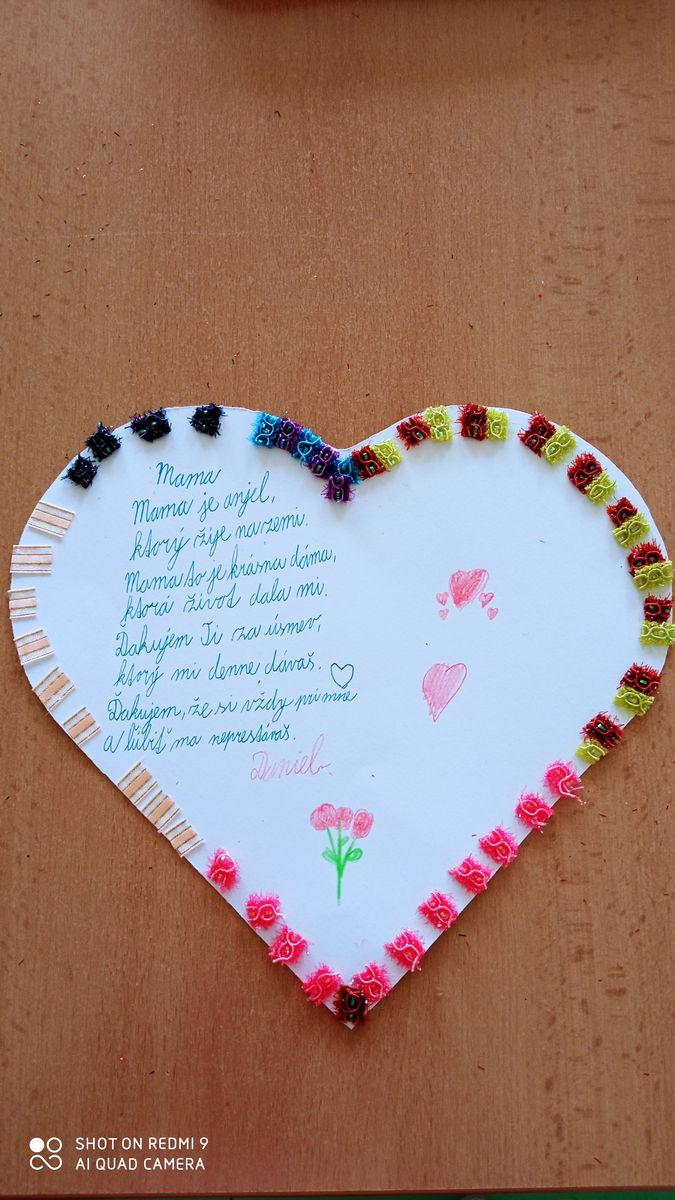 Mama
Mama je anjel,
ktorý žije na zemi.
Mama to je krásna dáma,
ktorá život dala mi.
Ďakujem Ti za úsmev,
ktorý mi denne dávaš.
Ďakujem, že si vždy pri mne
a ľúbiť ma neprestávaš.
Daniel.
SHOT ON REDMI 9
AI QUAD CAMERA